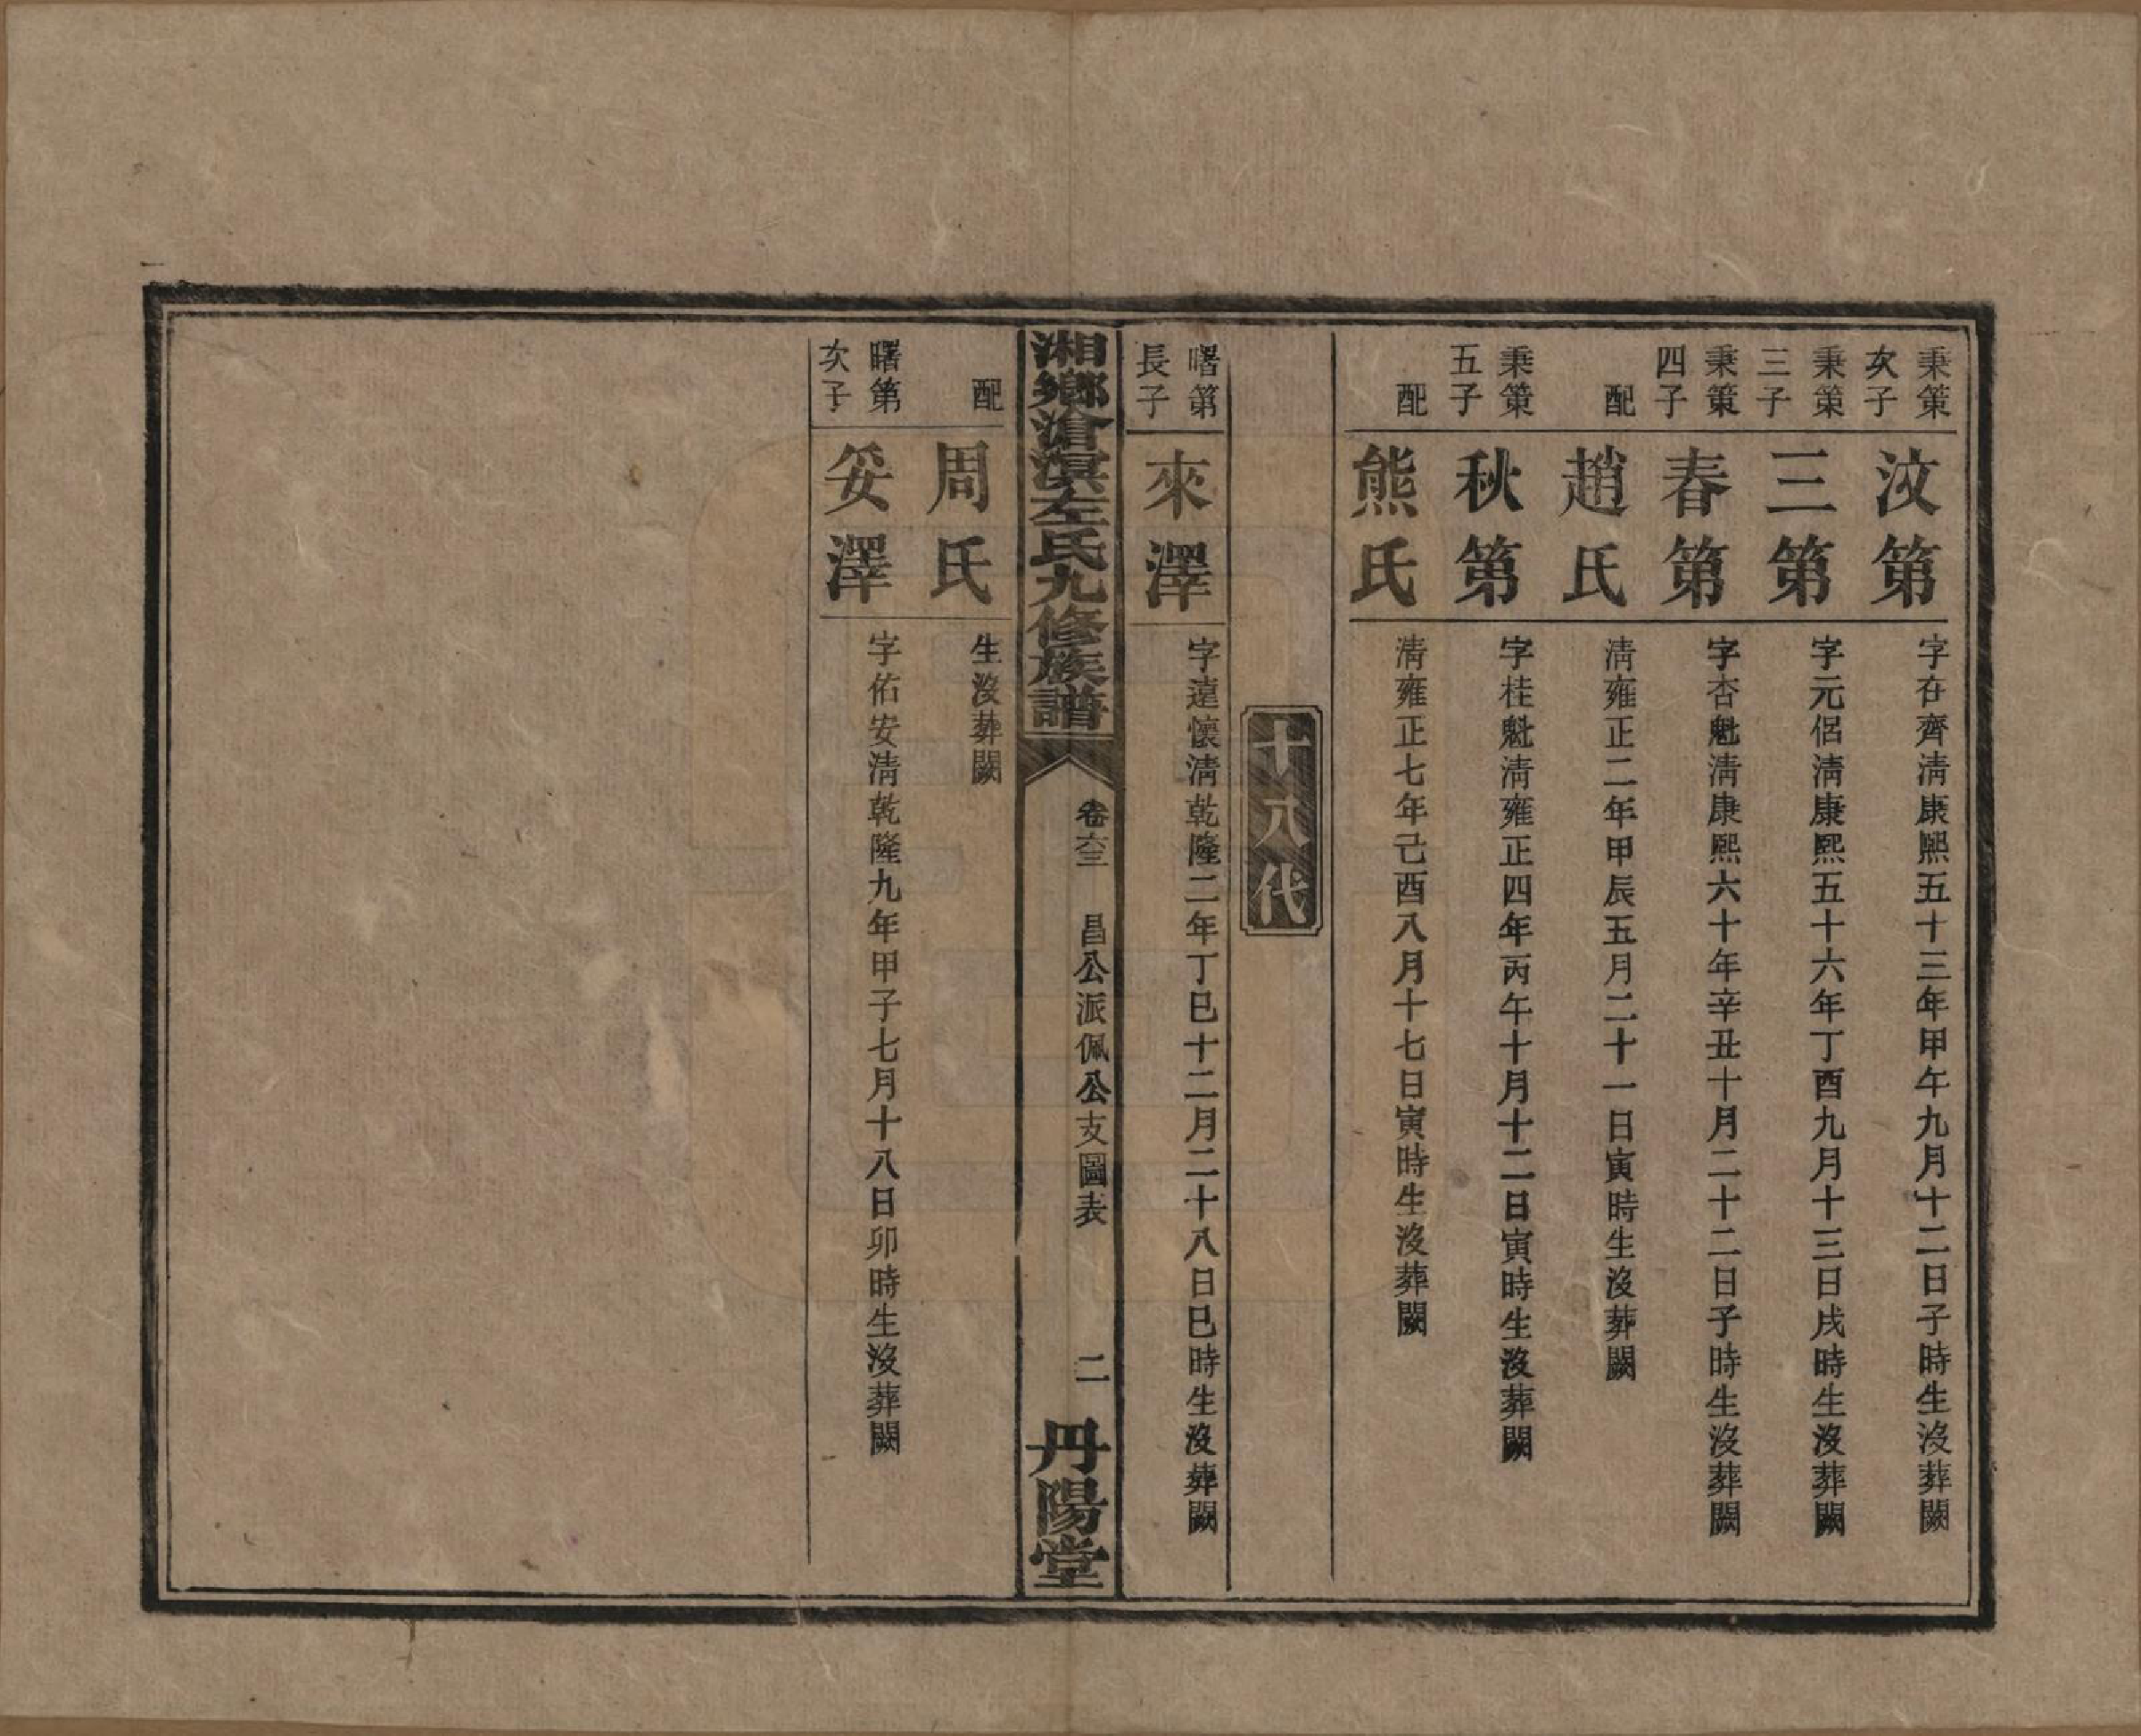 秉策
次子
汶第
字在齊清康熙五十三年甲午九月十二日子時生沒葬闕
秉策
三子
三第
字元侶清康熙五十六年丁酉九月十三日戌時生沒葬闕
秉策
四子
春第
字杏魁清康熙六十年辛丑十月二十二日子時生沒葬闕
配
趙氏
清雍正二年甲辰五月二十一日寅時生沒葬闕
秉策
五子
秋第
字桂魁清雍正四年丙午十月十二日寅時生沒葬闕
配
熊氏
清雍正七年己酉八月十七日寅時生沒葬闕
十八代
曙第
長子
來澤
字遠懷清乾隆二年丁巳十二月二十八日巳時生沒葬闕
湘鄉滄溟左氏九修族譜
卷六三
昌公派佩公支圖表
二
丹陽堂
配
周氏
生沒葬闕
曙第
次子
妥澤
字佑安清乾隆九年甲子七月十八日卯時生沒葬闕